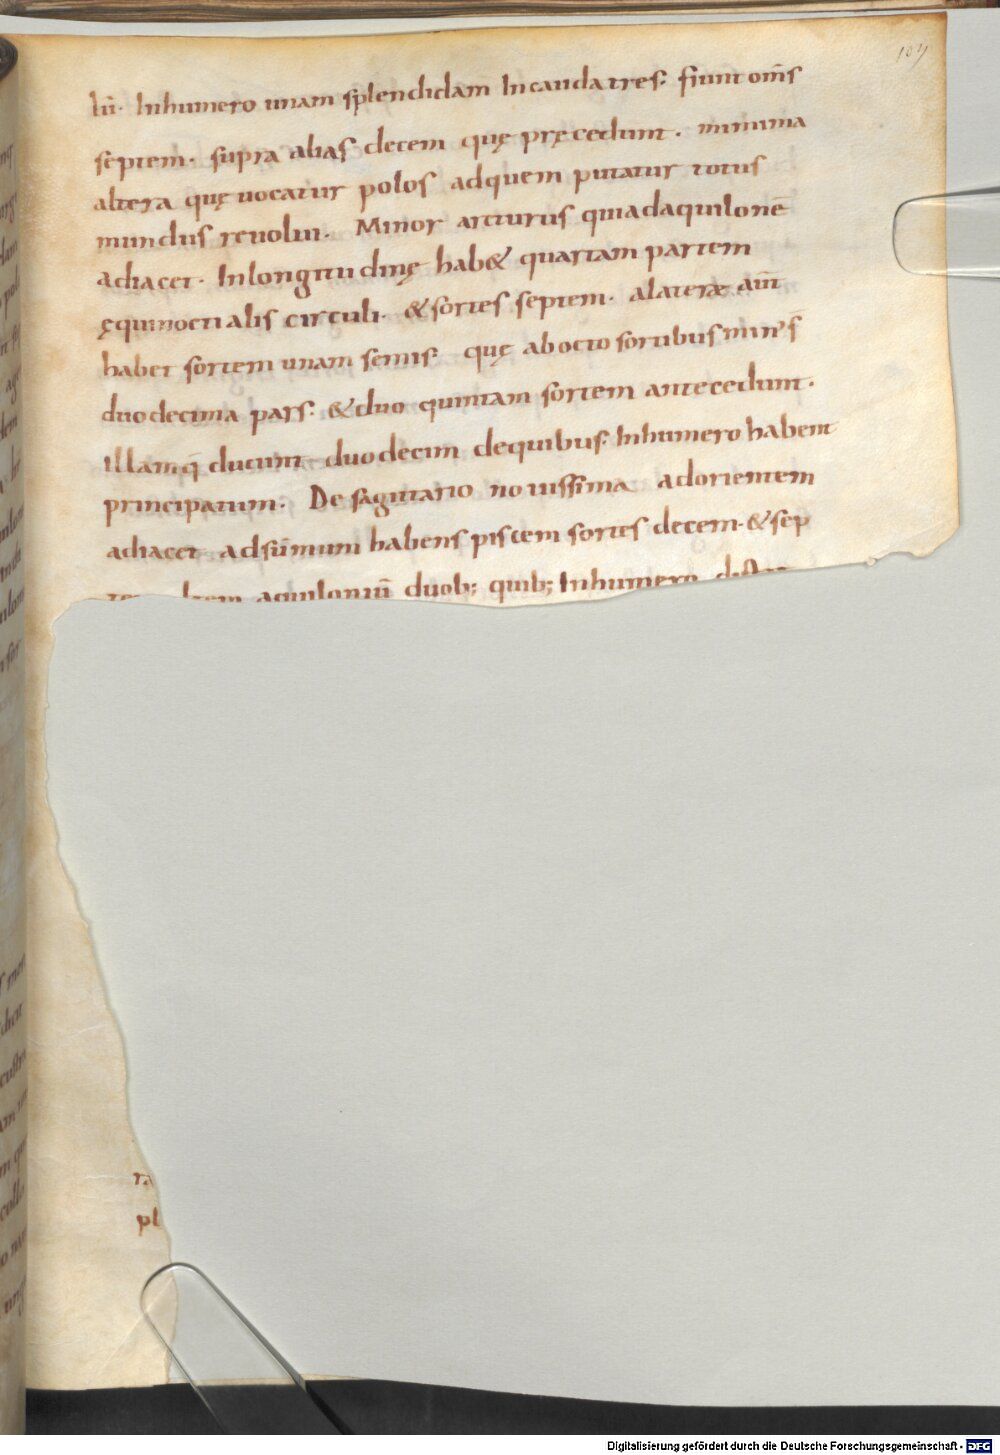 104
lū· Inhumero unam splendidam Incauda tres· fiunt om̄s
septem· supra alias decem quę pręcedunt· minima
altera quę uocatur polos adquem putatur totus
mundus reuolui· Minor arcturus quia daquilonē
adiacet· Inlongitudinę hab& quartam partem
ęquinoctialis circuli· & sortes septem· alateræ aūt
habet sortem unam semis· quę abocto sortibus min's
duodecima pars· & duo quintam sortem antecedunt·
Illamq; ducunt duodecim dequibus Inhumero habent
principatum· De sagittario nouissima adorientem
adiacet adsūmum habens piscem sortes decem· & sep
aquiloniū duob; quib; Inhumero
ra
pl
Digitalisierung gefördert durch die Deutsche Forschungsgemeinschaft - DFG